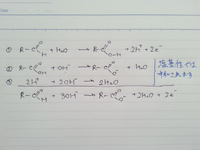 ① R-C=O-H + H₂O → R-C=O-O-H + 2H⁺ + 2e⁻
② R-C=O-O-H + OH⁻ → R-C=O-O⁻ + H₂O
③ 2H⁺ + 2OH⁻ → 2H₂O
R-C=O-H + 3OH⁻ → R-C=O-O⁻ + 2H₂O + 2e⁻
塩基性では